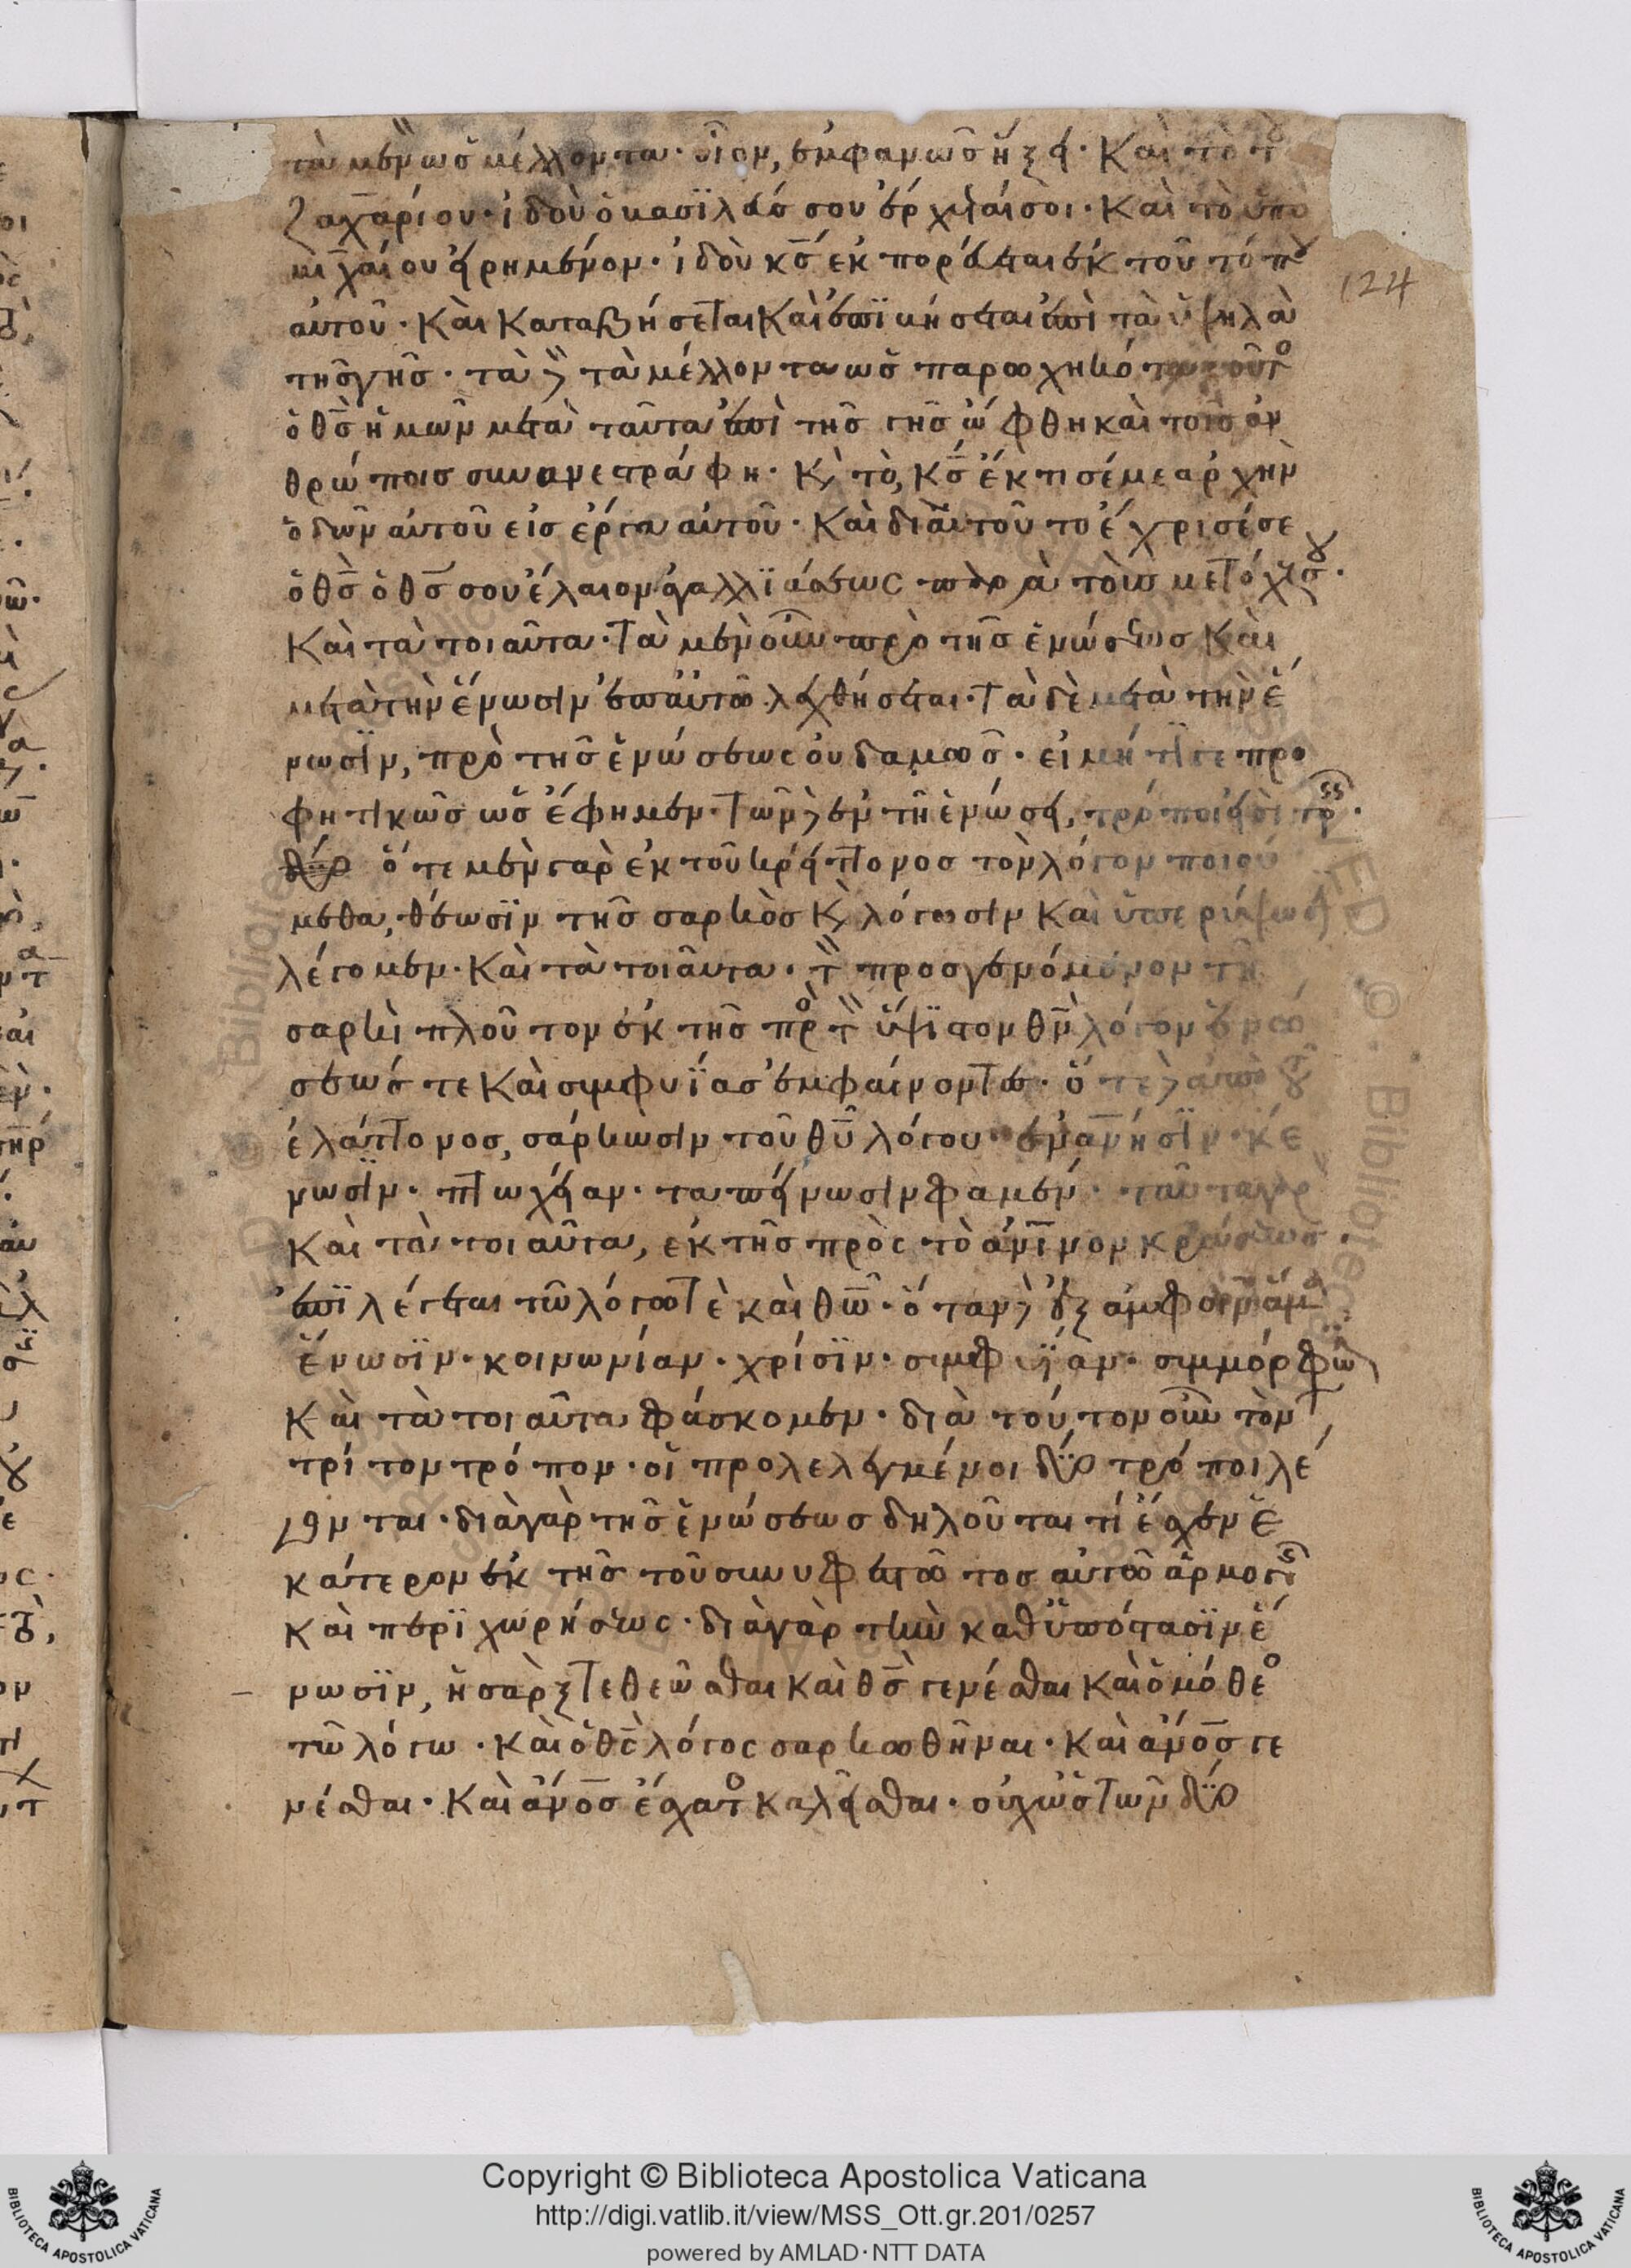 τὰ μὲν ὡς μέλλοντα· οἷον, ἐμφανῶς ἥξει· Καὶ τὸ τοῦ
ζαχαρίου· ἰδοὺ ὁ βασϊλεύς σου ἔρχεταί σοι· Καὶ τὸ ὑπὸ
μιχαίου εἰρημένον· ἰδοὺ κς ἐκπορεύεται ἐκ τοῦ τόπου
αὐτοῦ· Καὶ Καταβήσεται Καὶ ἐπϊβήσεται ἐπὶ τὰ ὑψηλὰ
τῆς γῆς· τὰ δὲ τὰ μέλλοντα ὡς παρωχηκότα· οὗτος
ὁ θς ἡμῶν μετὰ ταῦτα ἐπὶ τῆς γῆς ὤφθη καὶ τοῖς ἀν
θρώποις συνανεστράφη· Κ τὸ, κς ἔκτισέ με ἀρχὴν
ὁδῶν αὐτοῦ εἰς ἔργα αὐτοῦ· Καὶ διὰ τοῦτο ἔχρισέ σε
ὁ θς ὁ θς σου ἔλαιον ἀγαλλϊάσεως παρὰ τοὺς μετόχους σου·
Καὶ τὰ τοιαῦτα· Τὰ μὲν οὖν πρὸ τῆς ἑνώσεως Καὶ
μετὰ τὴν ἕνωσιν ἐπ' αὐτῶ λεχθήσεται· Τὰ δὲ μετὰ τὴν ἕ
νωσιν, πρὸ τῆς ἑνώσεως οὐδαμῶς· εἰ μήτι γε προ
φητικῶς ὡς ἔφημεν· Τῶν δὲ ἐν τῆ ἑνώσει, τρόποι εἰσὶ τρεῖς·
ὅτε μὲν γὰρ ἐκ τοῦ κρείττονος τὸν λόγον ποιού
μεθα, θέωσϊν τῆς σαρκὸς Κ λόγωσιν Καὶ ὑπερύψωσιν
λέγομεν· Καὶ τὰ τοιαῦτα· τὸν προσγενόμενον τῆ
σαρκὶ πλοῦτον ἐκ τῆς πρὸς τὸν ὕψϊστον θν λόγον ἑνώ
σεώς τε Καὶ συμφυΐας ἐμφαίνοντες· ὅτε δὲ ἀπὸ τοῦ
ἐλάττονος, σάρκωσιν τοῦ θυ λόγου· ἐνανησιν· κέ
νωσιν· πτωχείαν· ταπείνωσιν φαμέν· ταῦτα γὰρ
Καὶ τὰ τοιαῦτα, ἐκ τῆς πρὸς τὸ ἀνινον κράσεως
ἐπϊλέγεται τῶ λόγω Τὲ καὶ θω· ὅταν δὲ ἐξ ἀμφοῖν ἅμα
ἕνωσϊν· κοινωνίαν· χρίσϊν· συμφυΐαν· συμμόρφωσιν
Καὶ τὰ τοιαῦτα φάσκομεν· διὰ τοῦτον οὖν τὸν
τρίτον τρόπον· οἱ προλελεγμένοι δύο τρόποι λέ
γονται· διὰ γὰρ τῆς ἑνώσεως δηλοῦται τί ἔσχεν ἑ
κάτερον ἐκ τῆς τοῦ συνυφεστῶτος αὐτῶ ἁρμογῆς
Καὶ περϊχωρήσεως· διὰ γὰρ τὴν καθ' ὑπόστασϊν ἕ
νωσϊν, ἡ σὰρξ Τεθεῶσθαι Καὶ θς γενέσθαι Καὶ ὁμόθεος
τῶ λόγω· Καὶ ὁ θς λόγος σαρκωθῆναι· Καὶ ἀνος γε
νέσθαι· Καὶ ἀνος ἔσχατος καλεῖσθαι· οὐχ ὡς Τῶν δύο
124
Copyright © Biblioteca Apostolica Vaticana
http://digi.vatlib.it/view/MSS_Ott.gr.201/0257
powered by AMLAD·NTT DATA
BIBLIOTECA APOSTOLICA VATICANA
BIBLIOTECA APOSTOLICA VATICANA